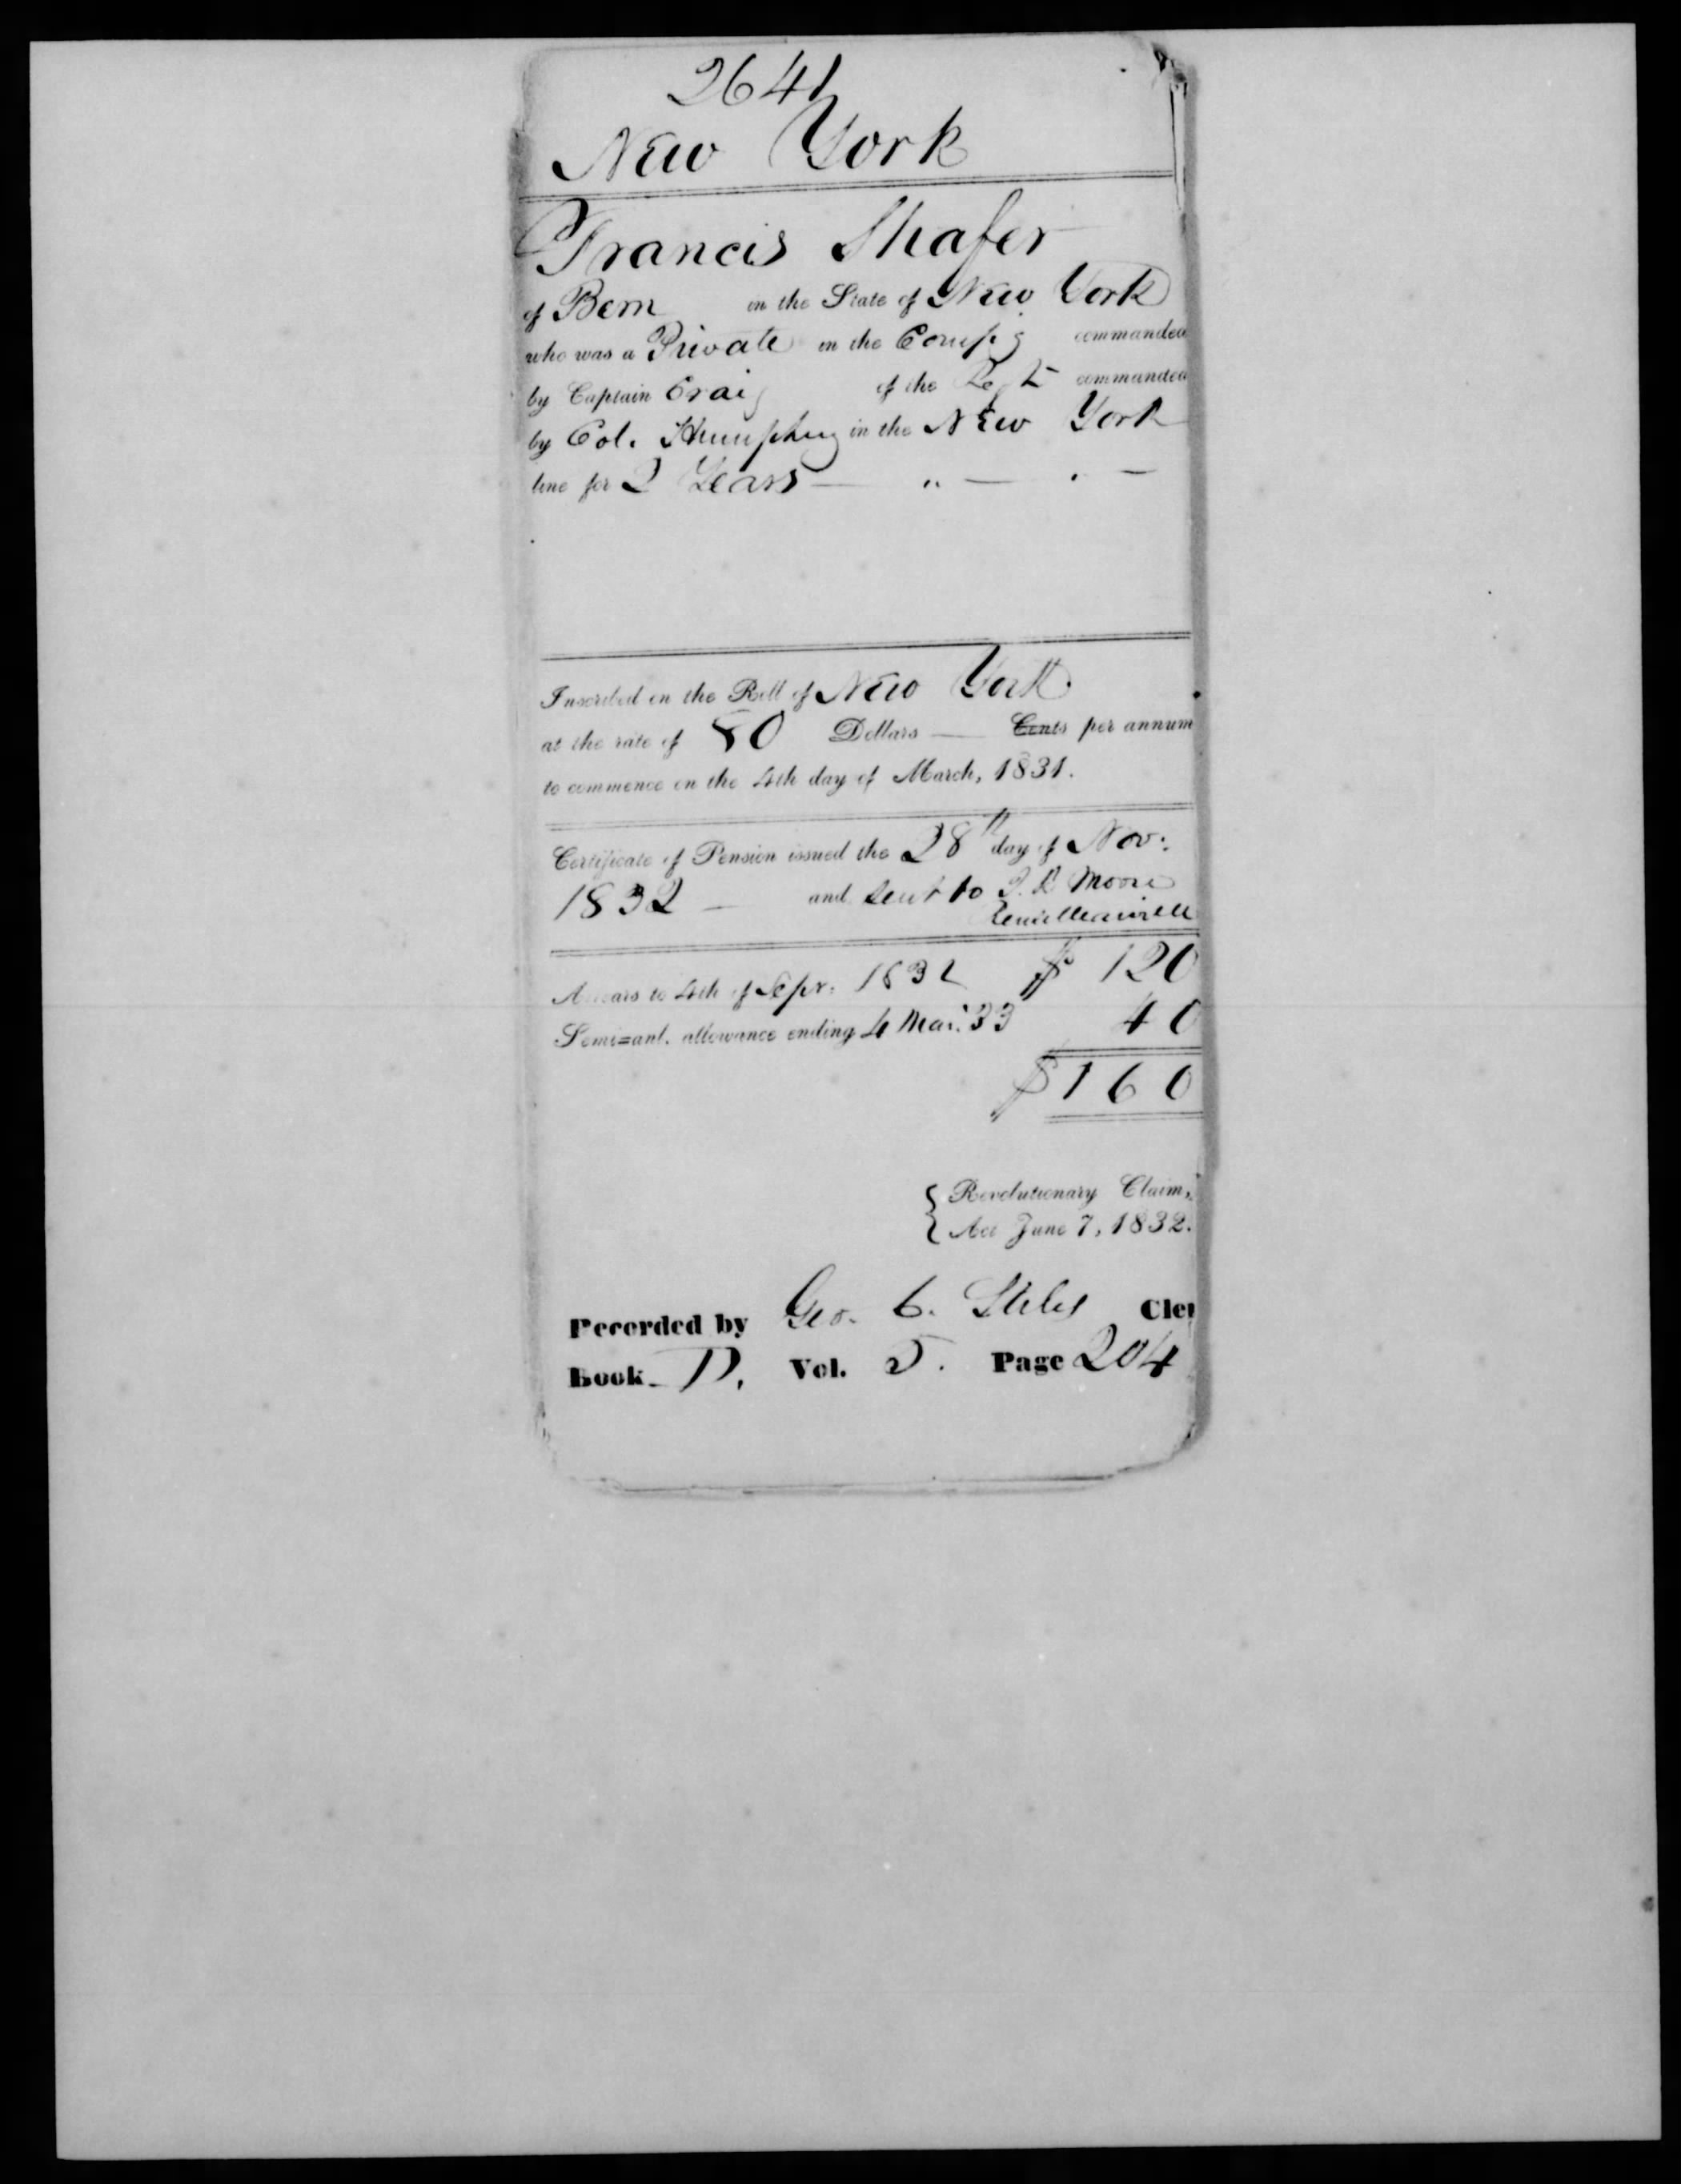 2641
New York
Francis Shafer
of Bern in the State of New York
who was a Private in the Compy commanded
by Captain Craig of the Regt commanded
by Col. Humphrey in the New York
line for 2 Years — " — . —
Inscribed on the Roll of New York
at the rate of 80 Dollars — Cents per annum
to commence on the 4th day of March, 1831.
Certificate of Pension issued the 28th day of Nov.
1832 — and sent to J. D. Moore
Arrears to 4th of Sepr. 1832 $ 120
Semi-anl. allowance ending 4 Mar. 33 40
$160
{ Revolutionary Claim,
{ Act June 7, 1832.
Recorded by Geo. C. Stiles Cler
Book D, Vol. 5. Page 204